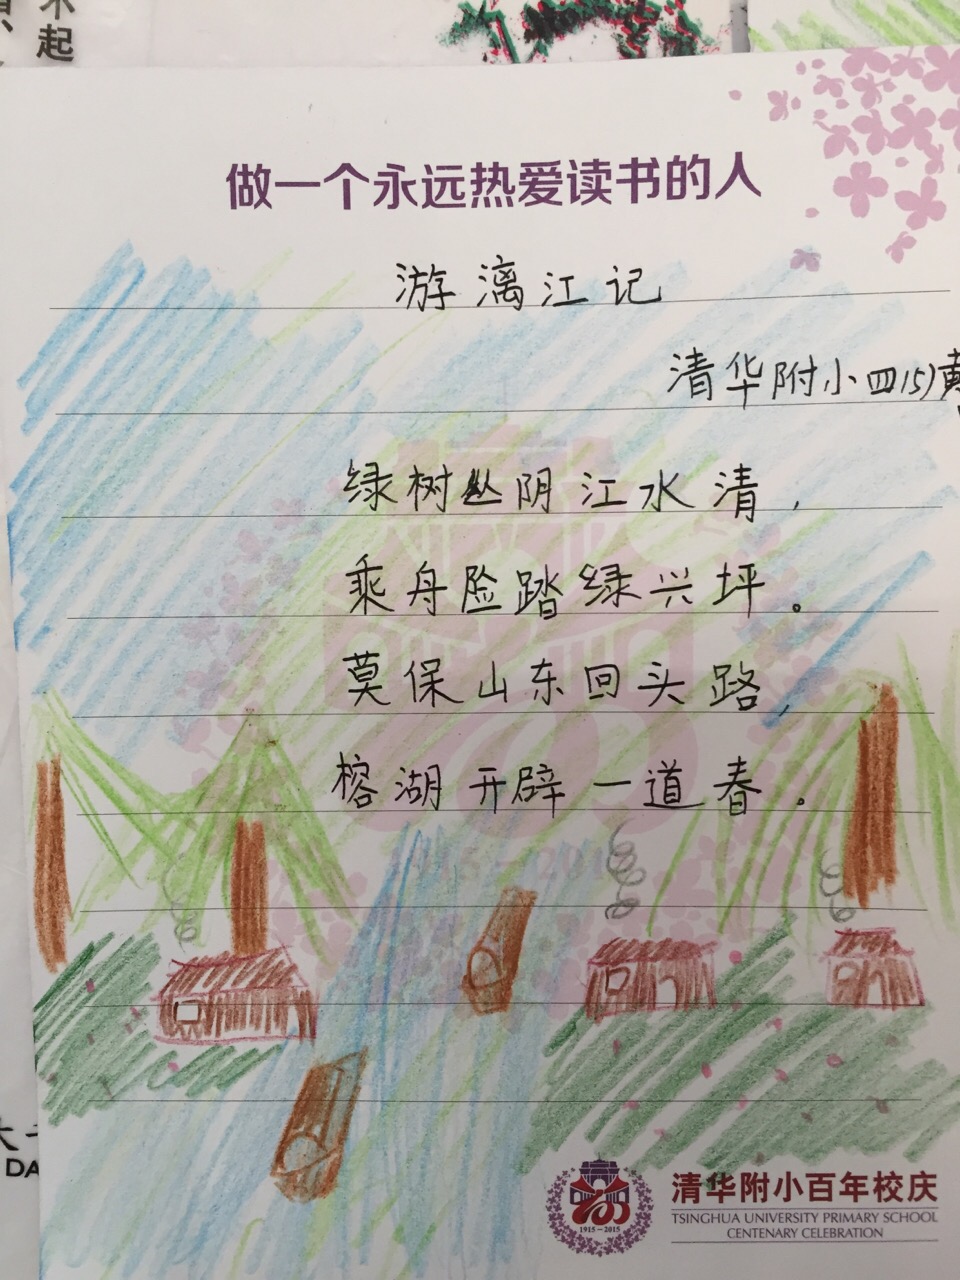 不起
做一个永远热爱读书的人
游漓江记
清华附小四(5)黄
绿树丛阴江水清，
乘舟险踏绿兴坪。
莫保山东回头路，
榕湖开辟一道春。
1915-2015
清华附小百年校庆
TSINGHUA UNIVERSITY PRIMARY SCHOOL
1915-2015
CENTENARY CELEBRATION
DA